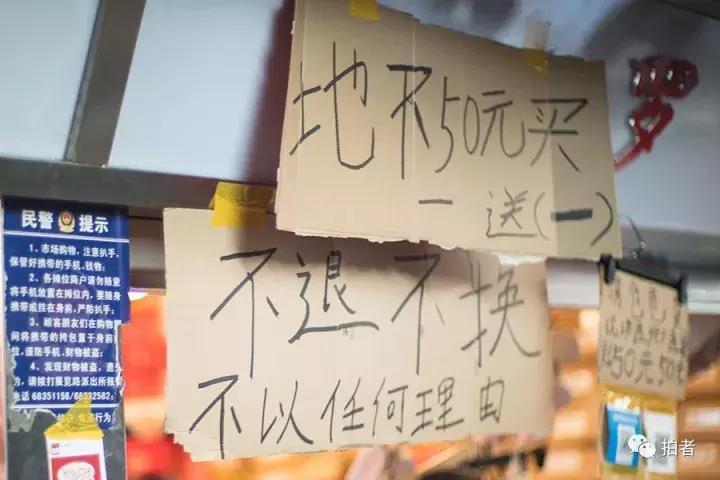 地不50元买
一送(一)
不退不换
不以任何理由
民警 提示
1、市场购物，注意扒手，
保管好携带的手机、钱物；
2、各摊位商户请勿随意
将手机放置在摊位内，要随身
携带或拄在身前，严防扒手；
3、顾客朋友们在购物
间将携带的挎包置于身前
位，谨防手机、财物被盗；
4、发现财物被盗，
，请拨打展览路派出所报
电话
50元
拍者